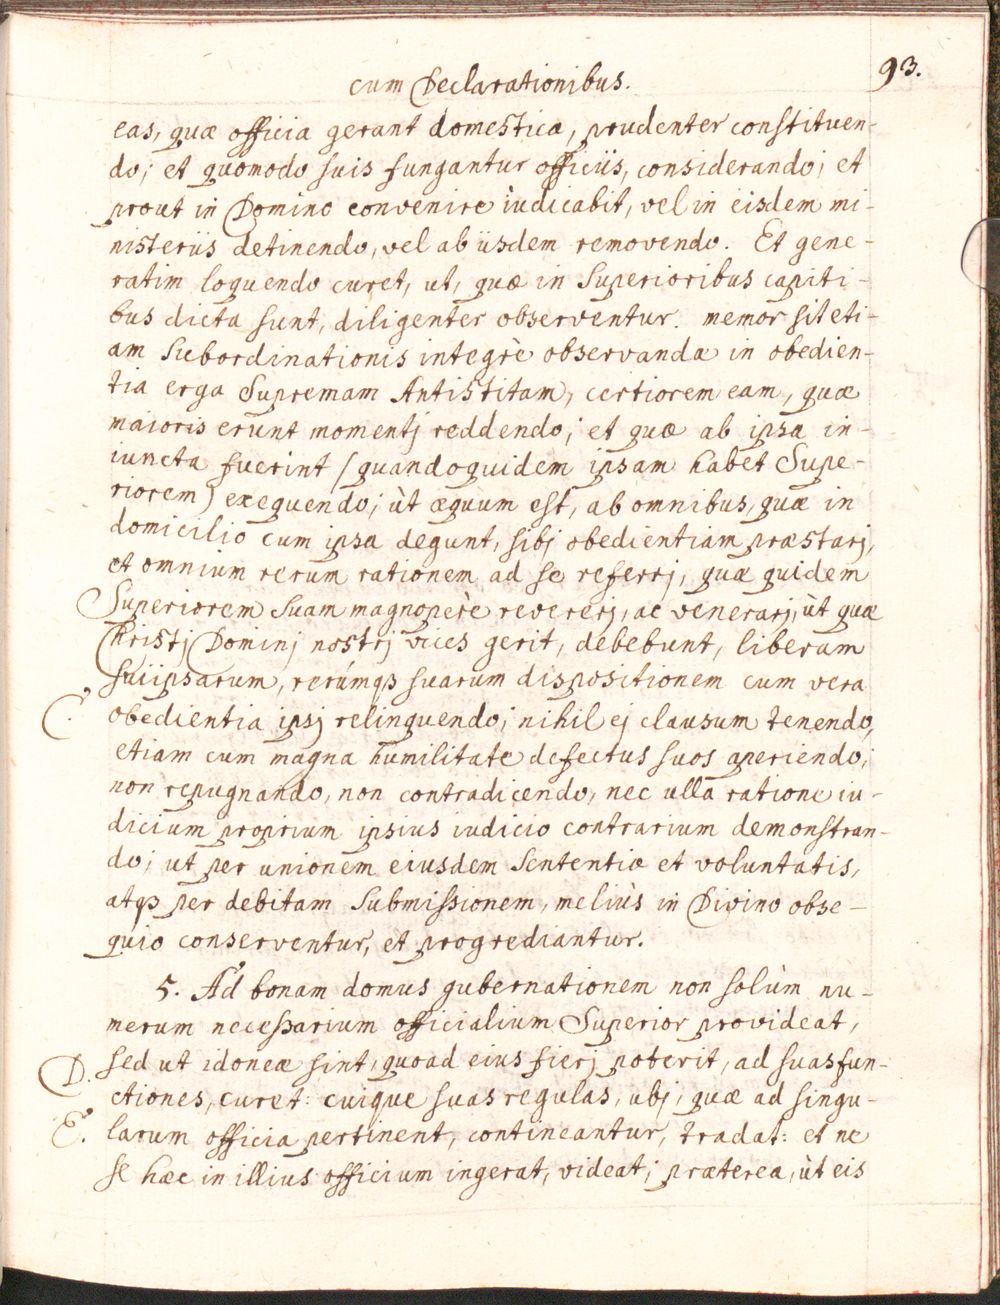 cum Declarationibus.
93.
eas, quæ officia gerant domestica, prudenter constituen-
do; et quomodo suis fungantur officijs, considerando; et
prout in Domino convenire iùdicabit, vel in eisdem mi-
nisterijs detinendo, vel ab ijsdem removendo. Et gene-
ratim loquendo curet, ut, quæ in Superioribus capiti-
bus dicta sunt, diligenter observentur. memor sit eti-
am Subordinationis integrè observandæ in obedien-
tia erga Supremam Antistitam, certiorem eam, quæ
maioris erunt momentj reddendo; et quæ ab ipsa in-
iuncta fuerint (quandoquidem ipsam habet Supe-
riorem) exequendo; ùt æquum est, ab omnibus, quæ in
domicilio cum ipsa degunt, sibj obedientiam præstarj,
et omnium rerum rationem ad se referrj, quæ quidem
Superiorem Suam magnoperè revererj, ac venerarj, ùt quæ
Christj Dominj nostrj vices gerit, debebunt, liberam
suiipsarum, rerúmqȝ suarum dispositionem cum vera
C.
obedientia ipsj relinquendo; nihil ej clausum tenendo,
etiam cum magna humilitate defectus suos aperiendo;
non repugnando, non contradicendo, nec ulla ratione iu-
dicium proprium ipsius iudicio contrarium demonstran-
do; ut per unionem eiusdem Sententiæ et voluntatis,
atqȝ per debitam Submissionem, meliùs in Divino obse-
quio conserventur, et progrediantur.
5. Ad bonam domus gubernationem non solùm nu-
merum necessarium officialium Superior provideat,
D.
sed ut idoneæ sint, quoad eius fierj poterit, ad suas fun-
ctiones, curet: cuique suas regulas, ubj, quæ ad singu-
E.
larum officia pertinent, contineantur, tradat: et ne
se hæc in illius officium ingerat, videat; præterea, ùt eis